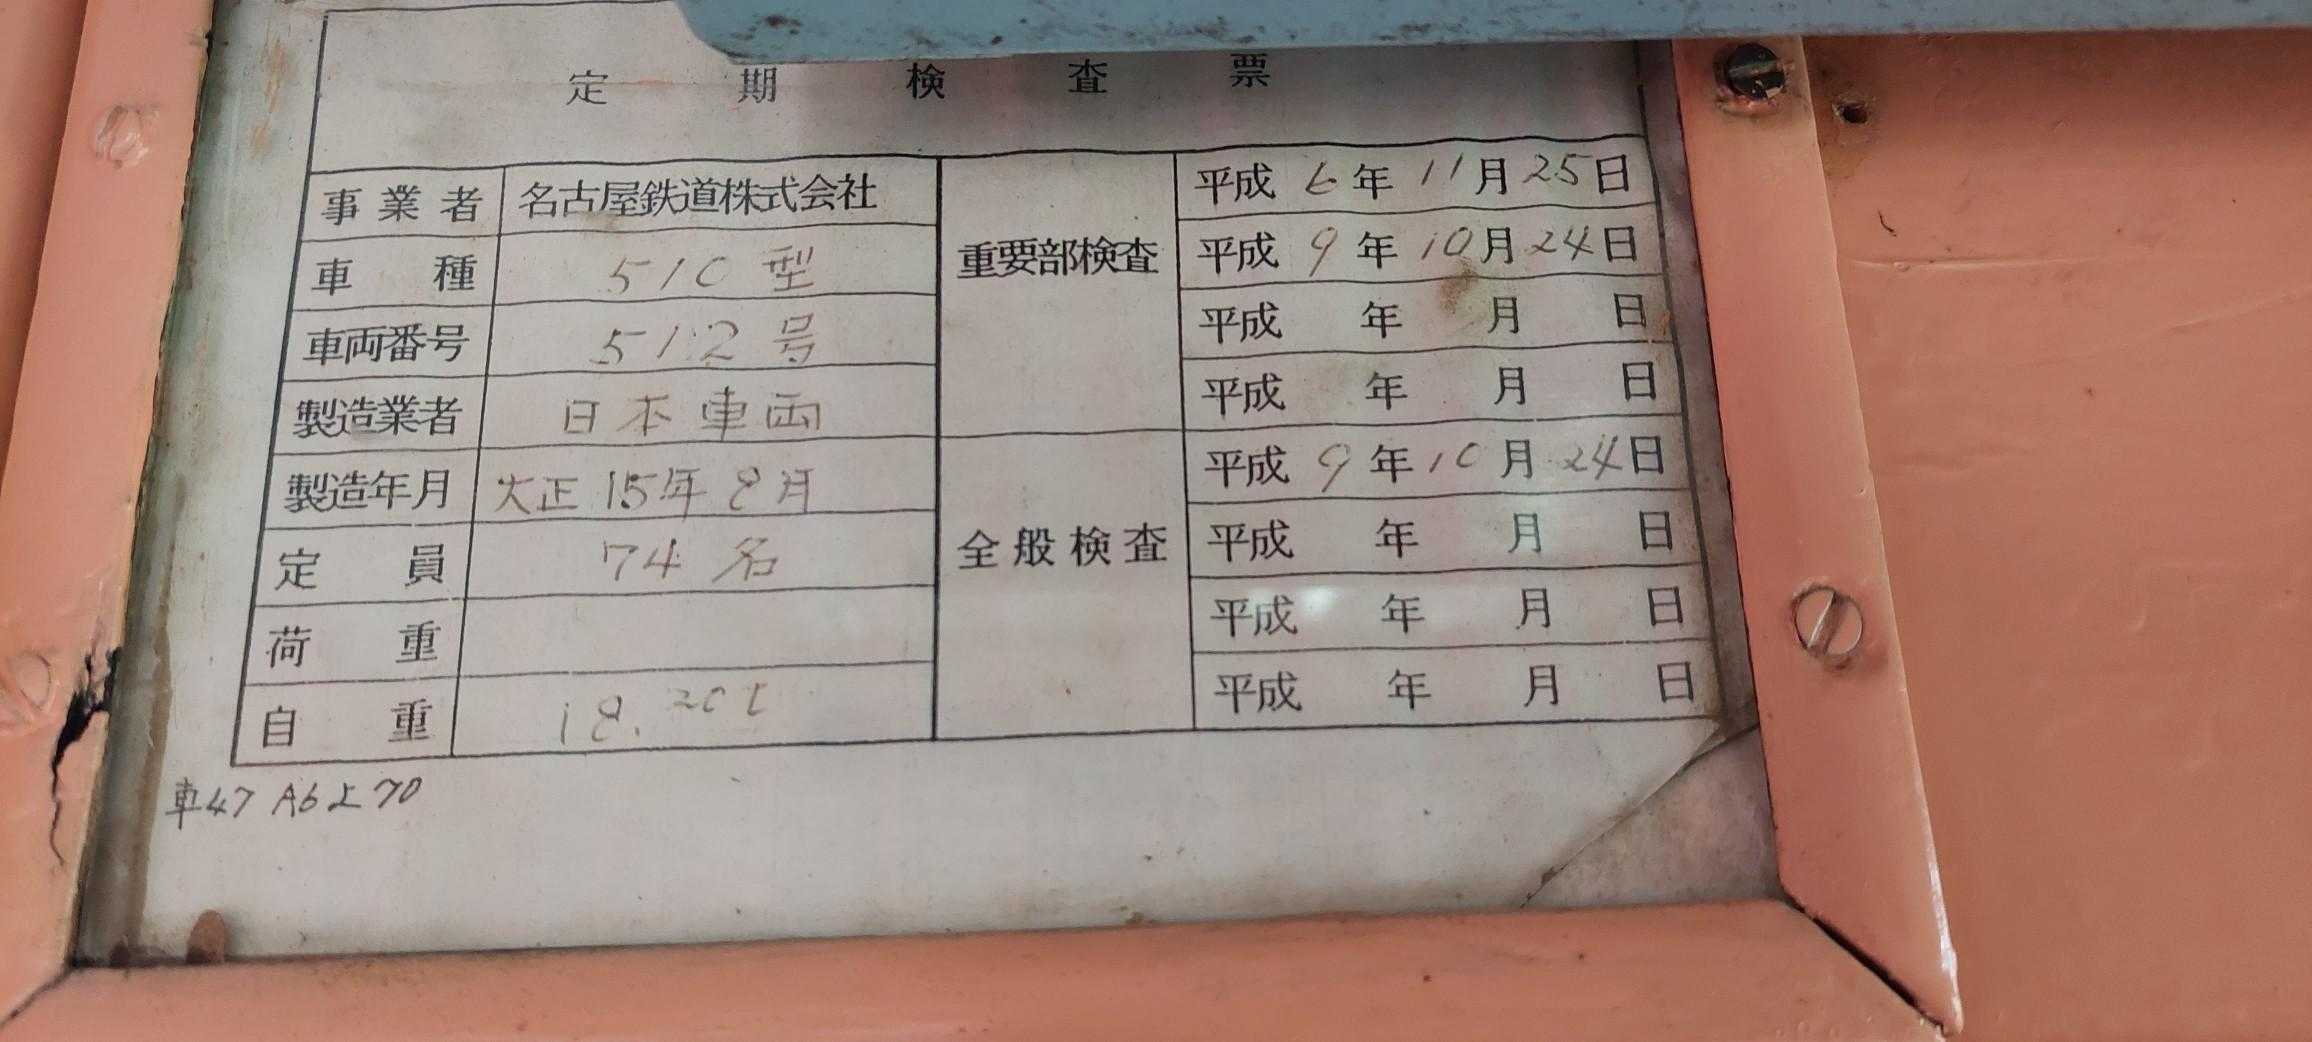 定期検査票
事業者 名古屋鉄道株式会社
車種 510型
車両番号 512号
製造業者 日本車両
製造年月 大正15年8月
定員 74名
荷重
自重 18.20t
重要部検査
平成6年11月25日
平成9年10月24日
平成 年 月 日
平成 年 月 日
全般検査
平成9年10月24日
平成 年 月 日
平成 年 月 日
平成 年 月 日
車47 A6上70